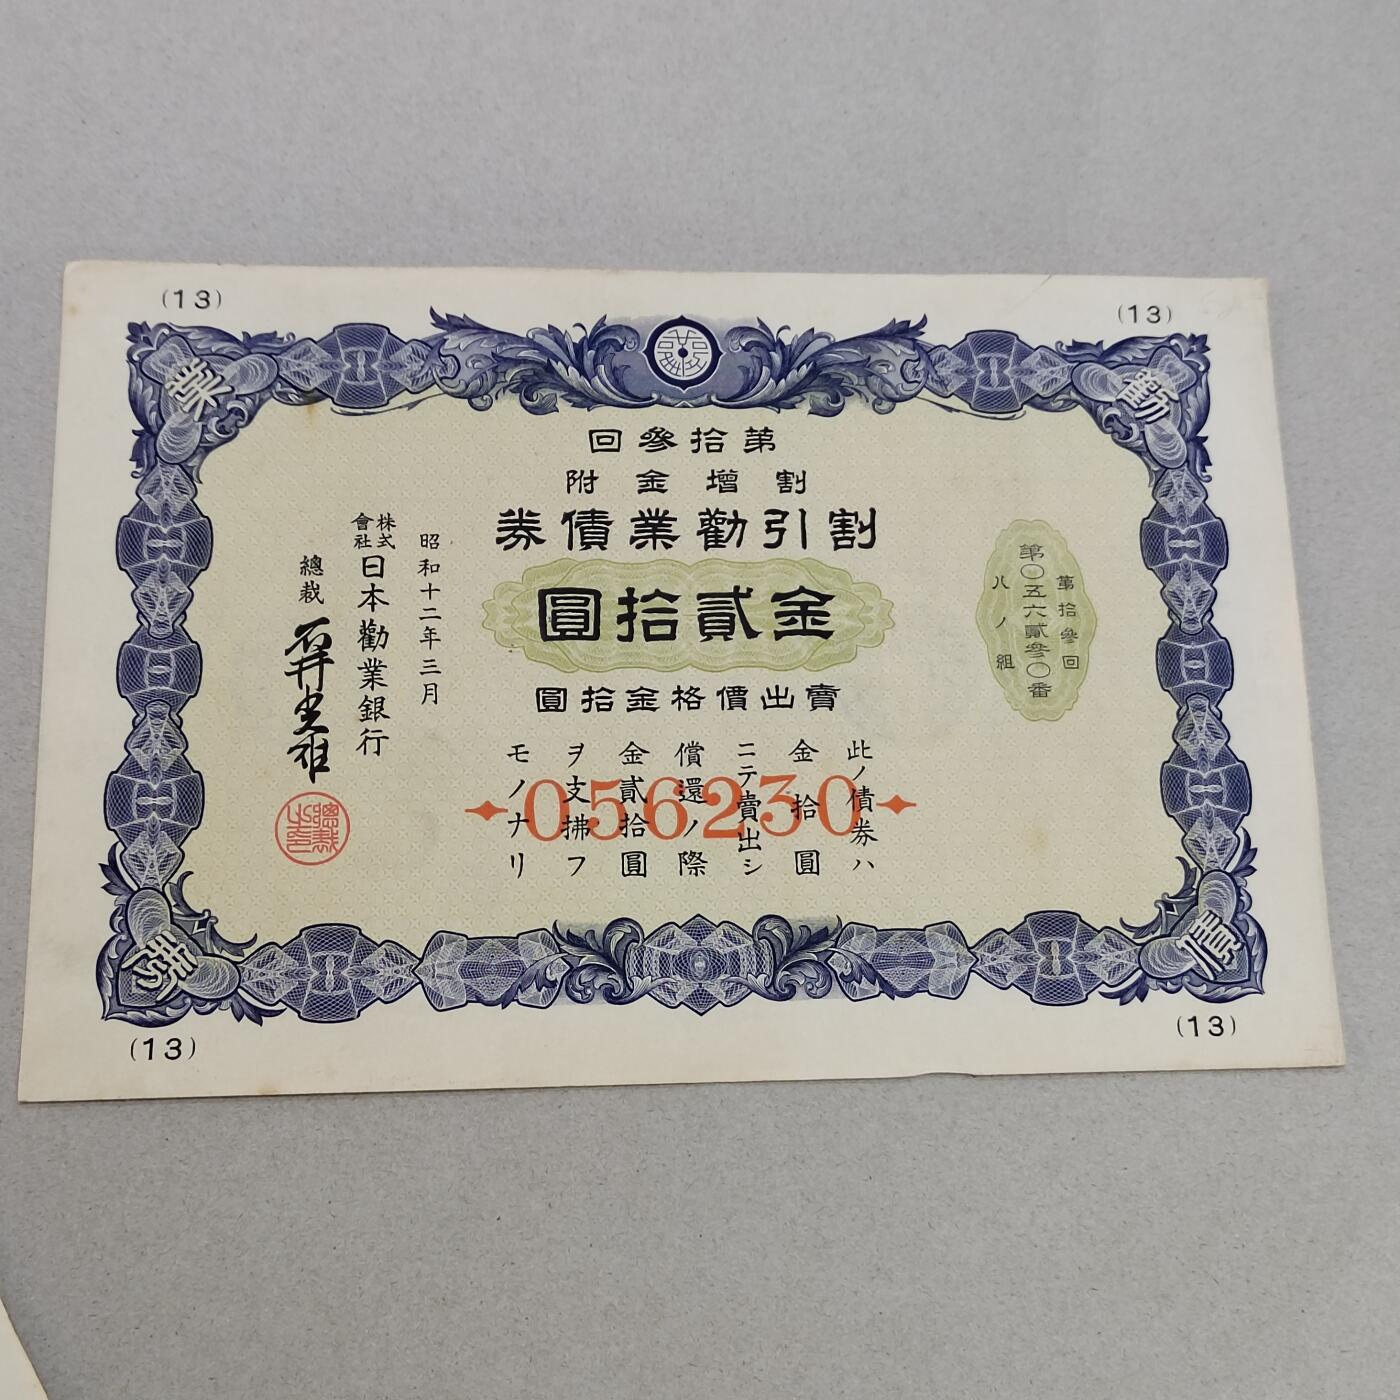 (13)
(13)
勸
業
債
券
第拾參回
割增金附
割引勸業債券
金貳拾圓
賣出價格金拾圓
第拾參回
第〇五六貳參〇番
ハノ組
此ノ債券ハ
金拾圓
ニテ賣出シ
償還ノ際
金貳拾圓
ヲ支拂フ
モノナリ
056230
昭和十二年三月
株式會社日本勸業銀行
總裁
總裁之印
(13)
(13)